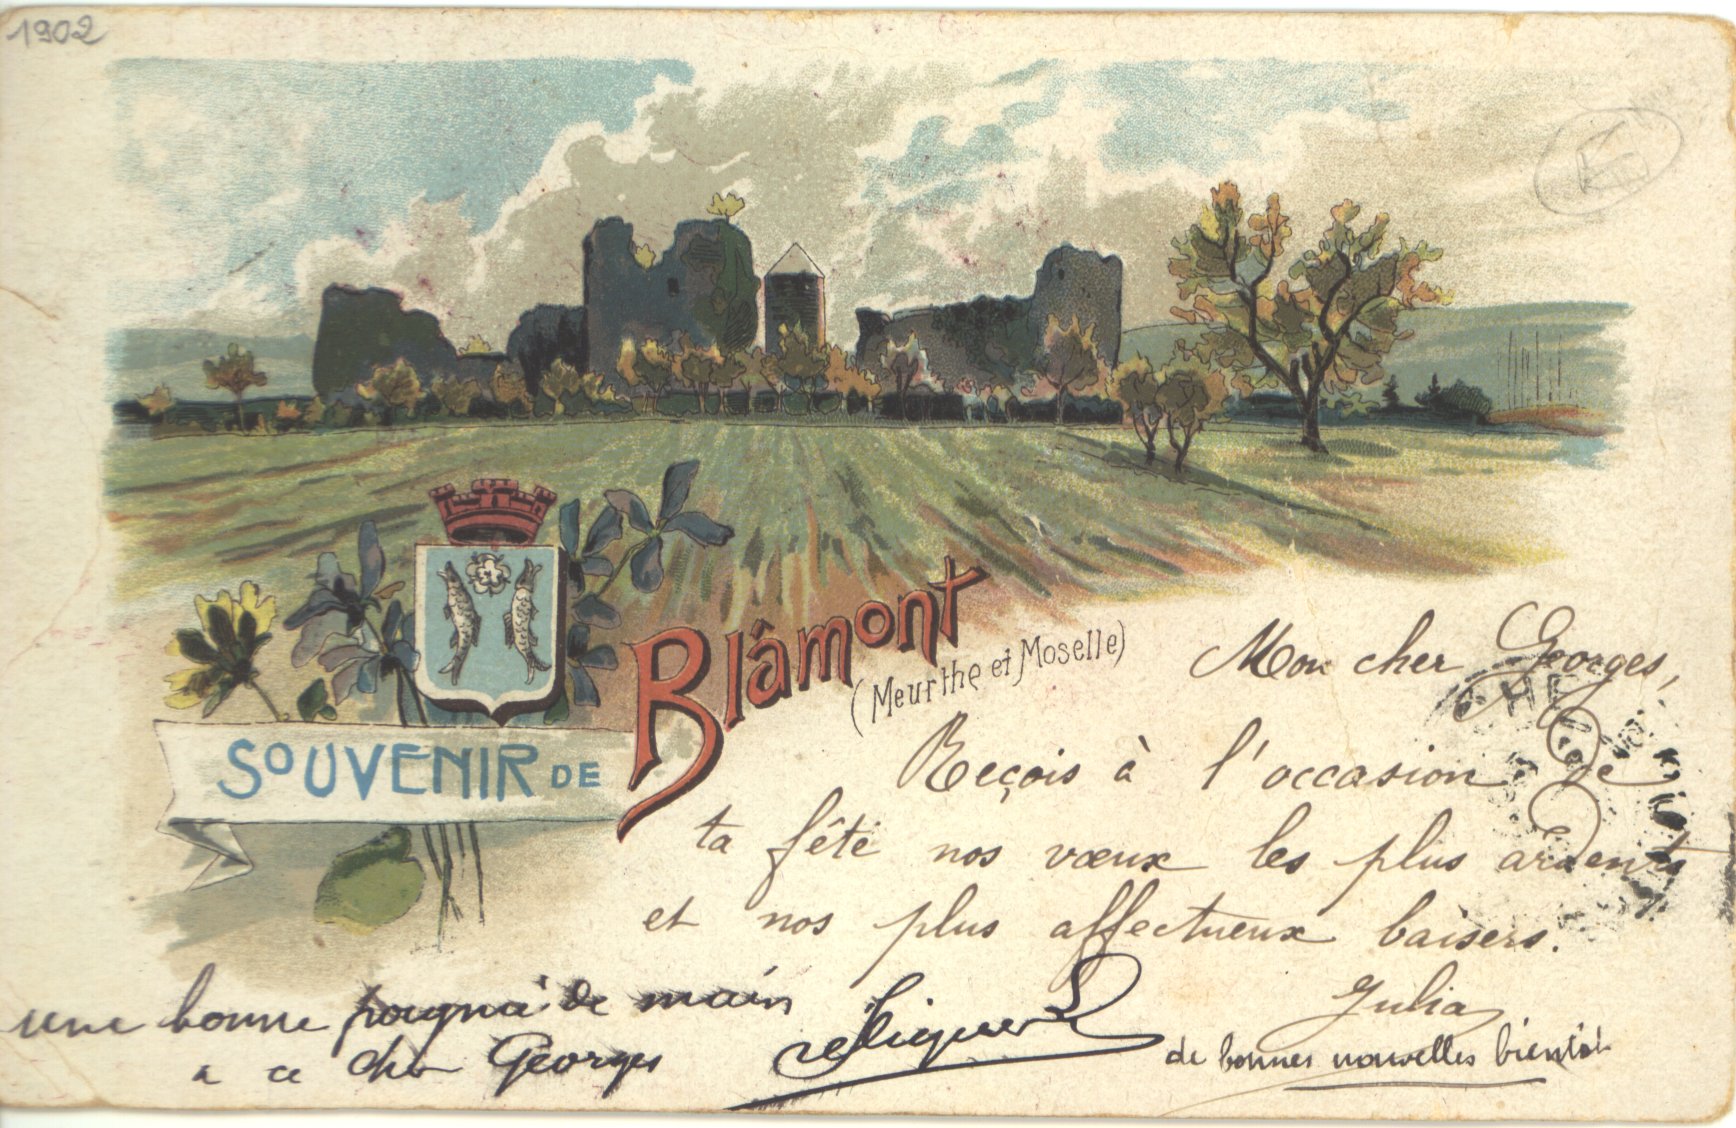 1902
SOUVENIR DE
Blâmont
(Meurthe et Moselle)
Mon cher Georges,
Reçois à l'occasion de
ta fête nos vœux les plus ardents
et nos plus affectueux baisers.
Julia
une bonne poigné de main
a ce cher Georges
de bonnes nouvelles bientôt